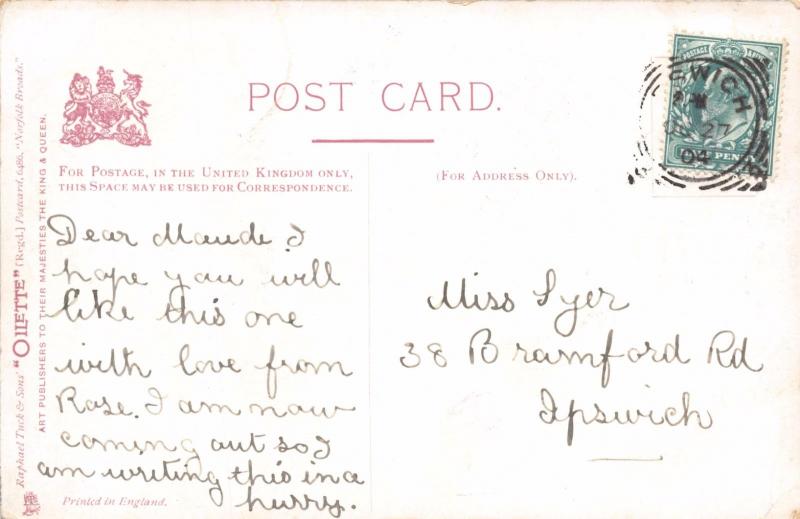 POST CARD.
FOR POSTAGE, IN THE UNITED KINGDOM ONLY,
THIS SPACE MAY BE USED FOR CORRESPONDENCE.
(FOR ADDRESS ONLY).
Raphael Tuck & Sons' "OILETTE" [Regd.] Postcard, 6486, "Norfolk Broads."
ART PUBLISHERS TO THEIR MAJESTIES THE KING & QUEEN.
Dear Maude I
hope you will
like this one
with love from
Rose. I am now
coming out so I
am writing this in a
hurry.
Printed in England.
Miss Syer
38 Bramford Rd
Ipswich
POSTAGE
PSWICH
27
04